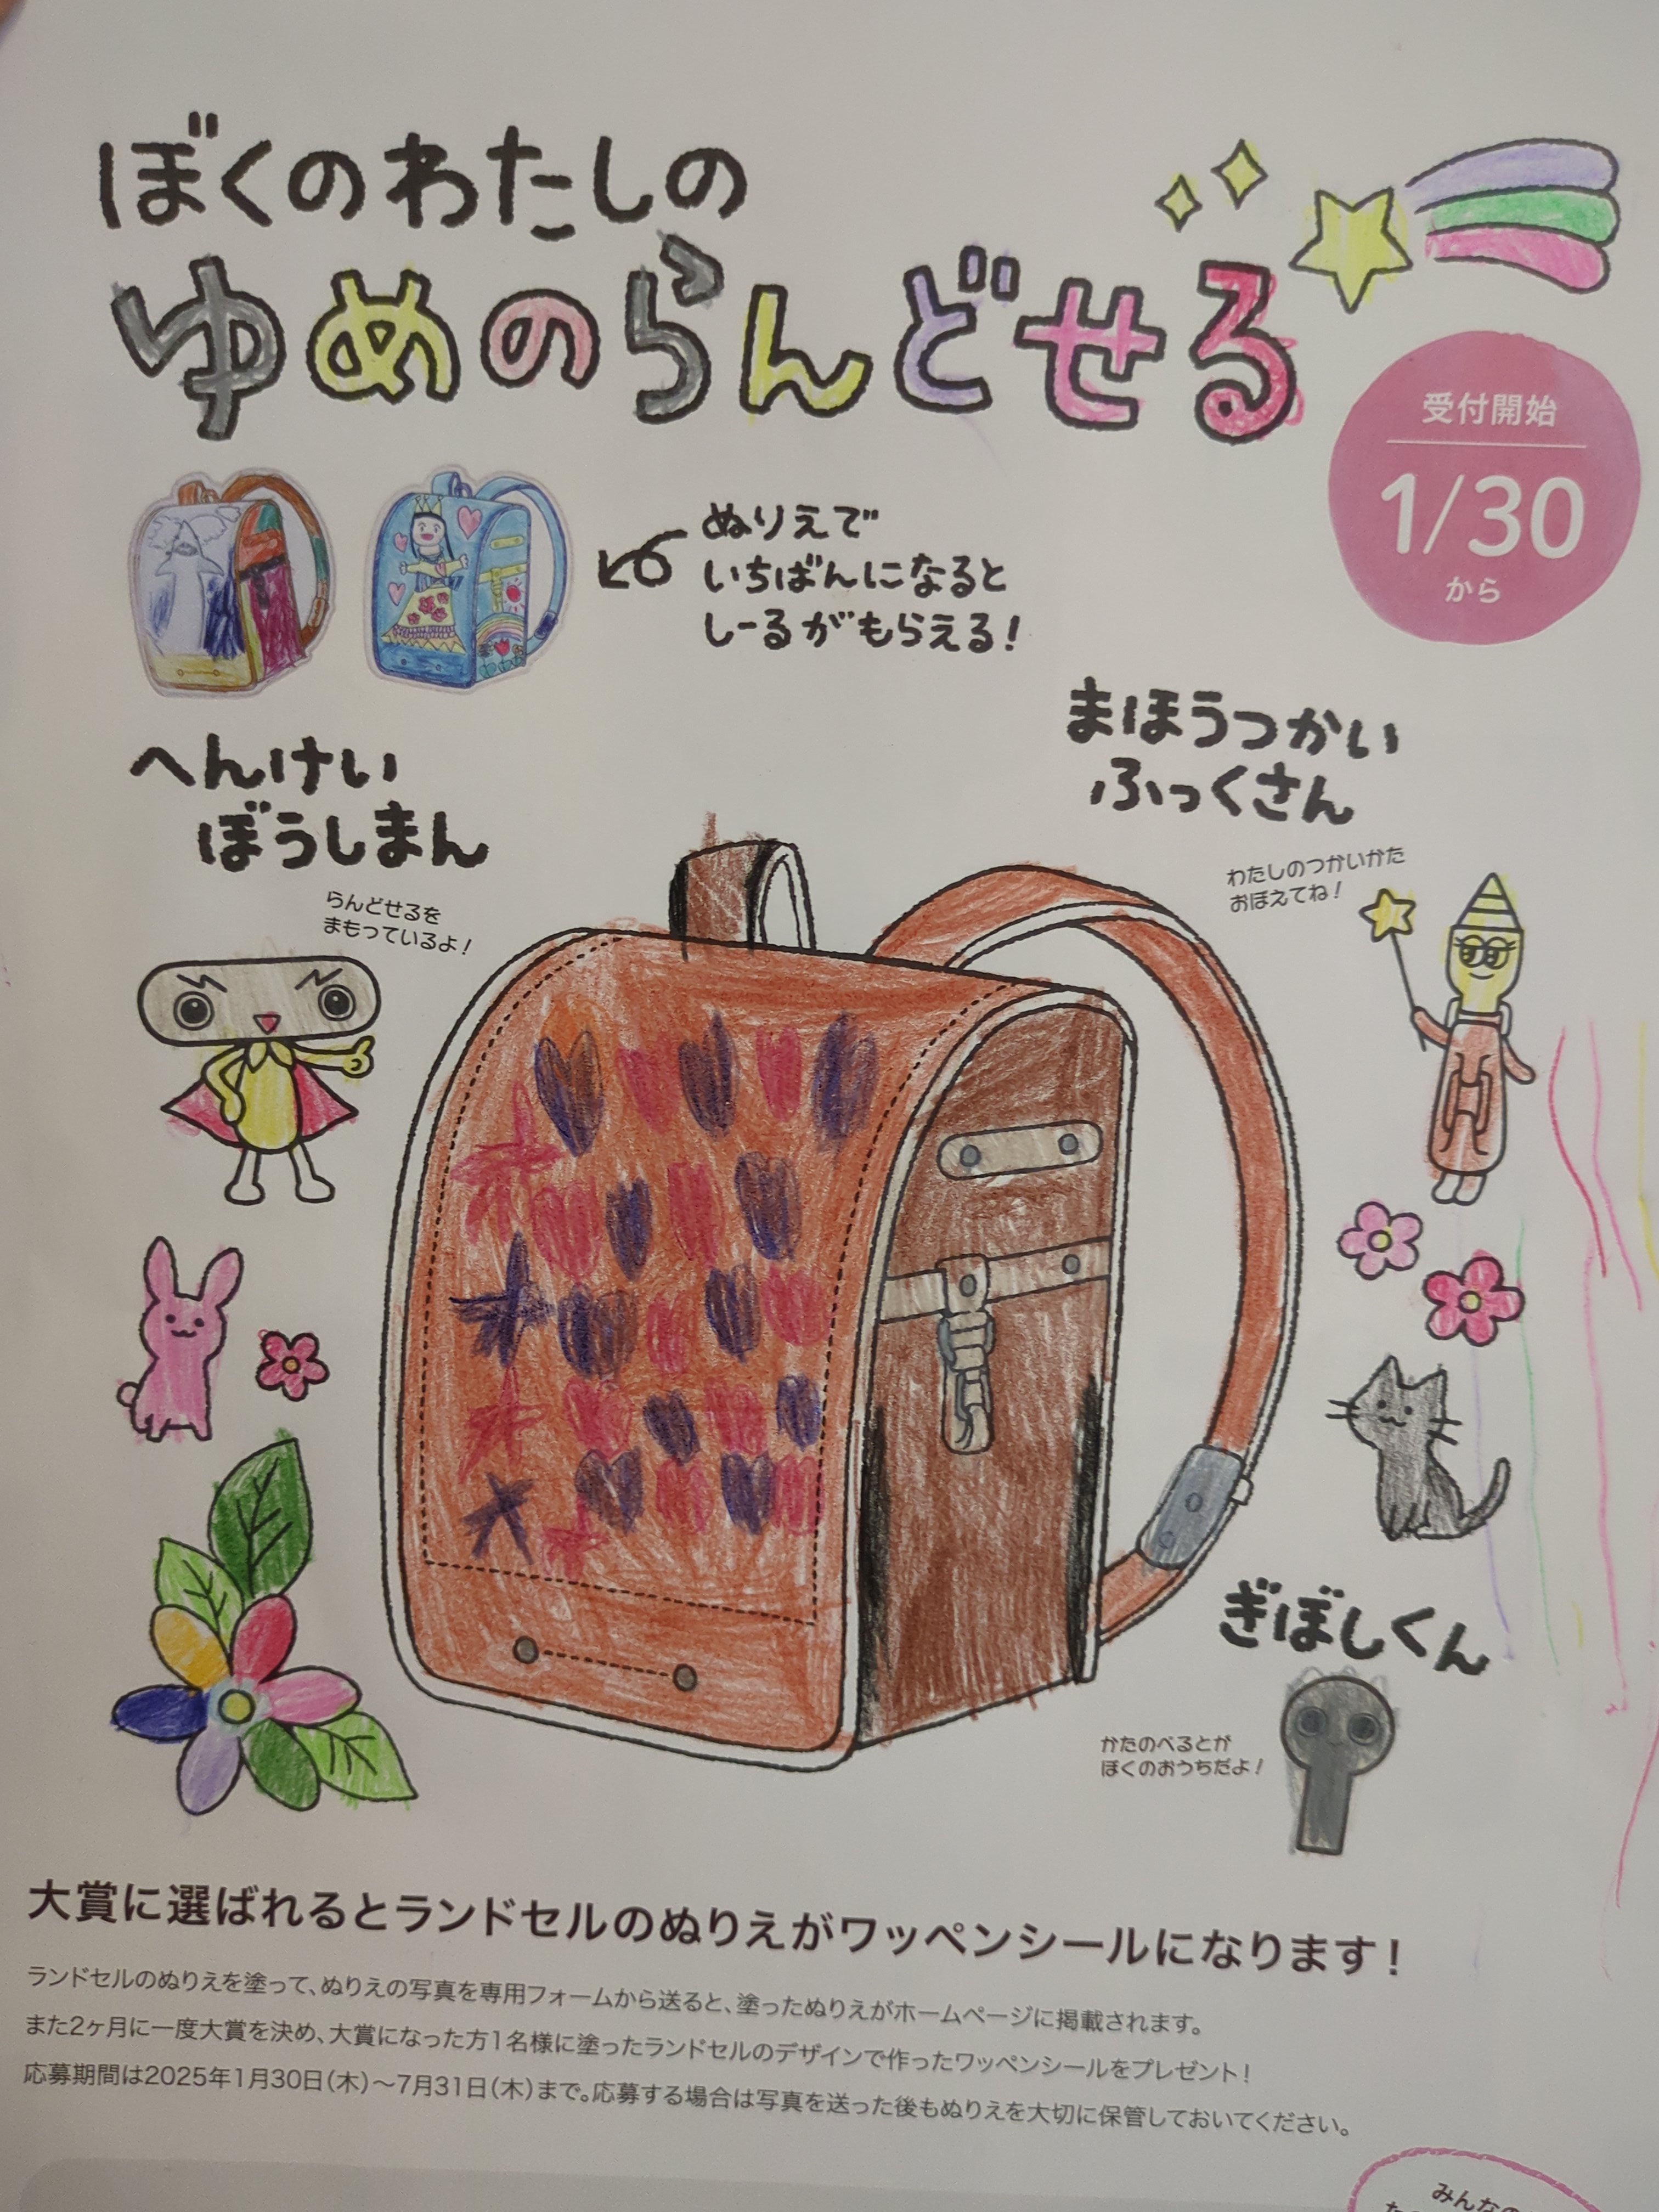 ぼくのわたしの
ゆめのらんどせる
受付開始
1/30
から
ぬりえで
いちばんになると
しーるがもらえる！
へんけい
ぼうしまん
らんどせるを
まもっているよ！
まほうつかい
ふっくさん
わたしのつかいかた
おぼえてね！
ぎぼしくん
かたのべるとが
ぼくのおうちだよ！
大賞に選ばれるとランドセルのぬりえがワッペンシールになります！
ランドセルのぬりえを塗って、ぬりえの写真を専用フォームから送ると、塗ったぬりえがホームページに掲載されます。
また2ヶ月に一度大賞を決め、大賞になった方1名様に塗ったランドセルのデザインで作ったワッペンシールをプレゼント！
応募期間は2025年1月30日(木)～7月31日(木)まで。応募する場合は写真を送った後もぬりえを大切に保管しておいてください。
みんなの